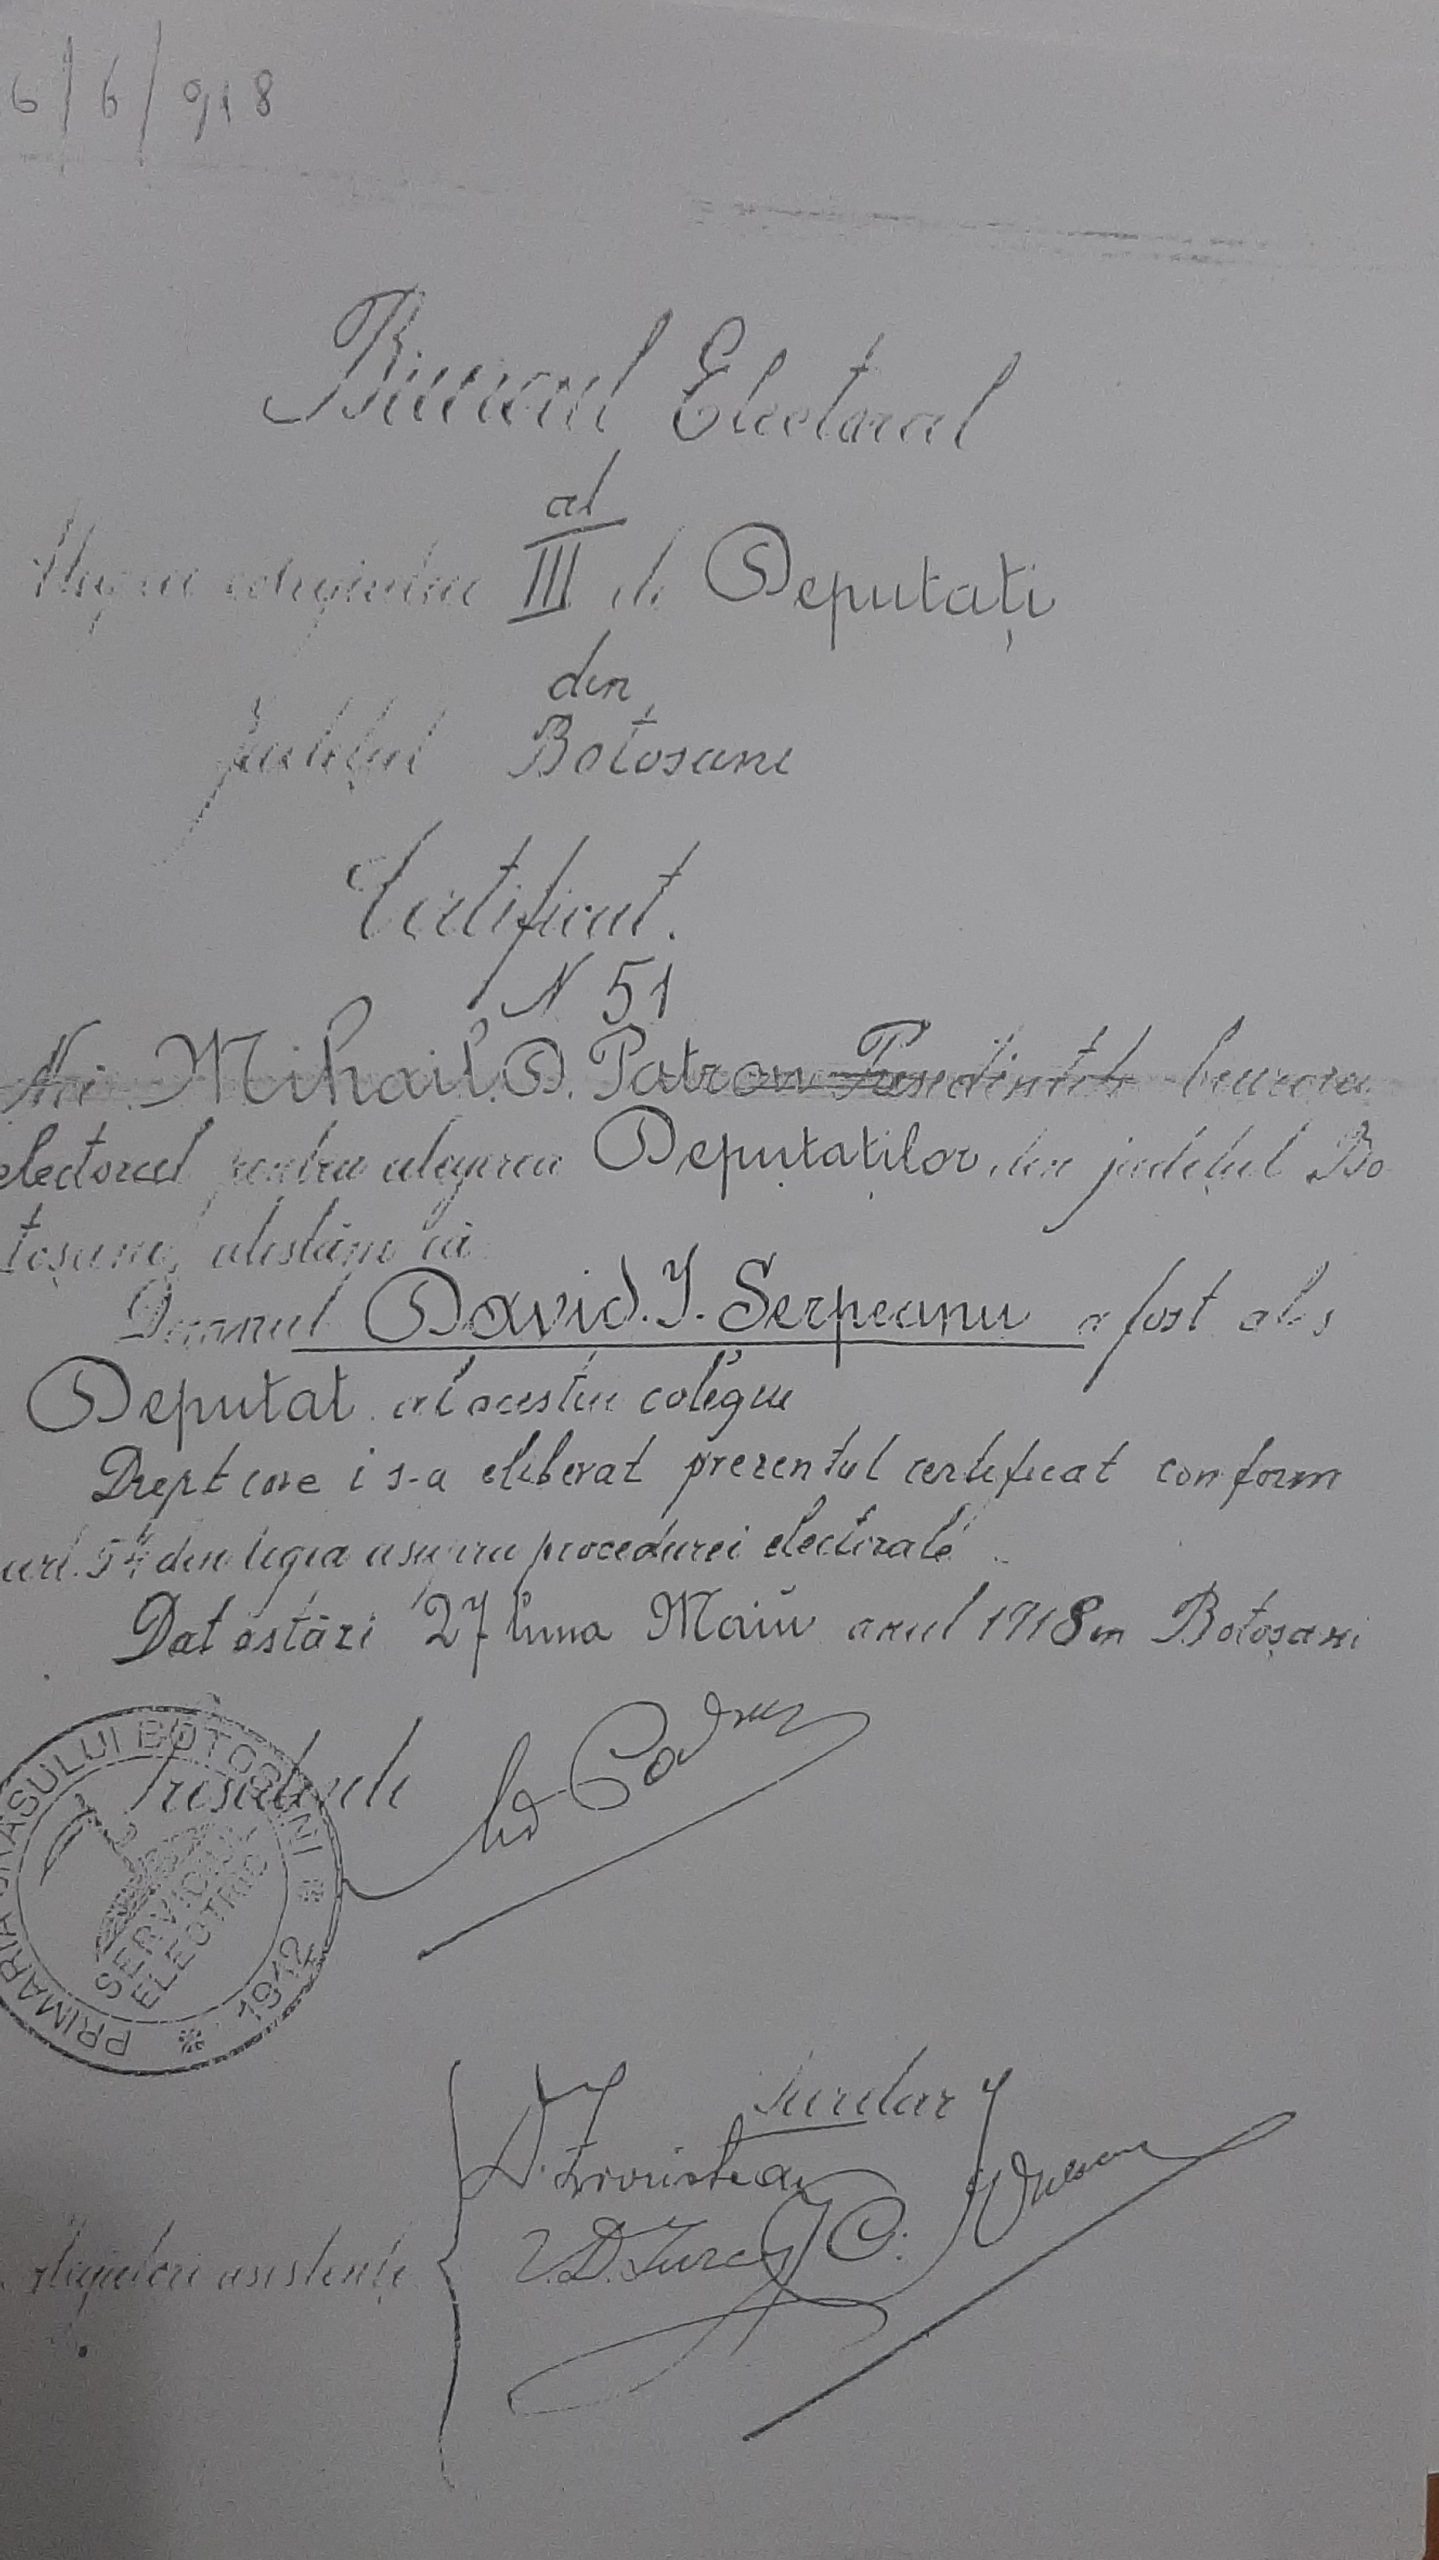 6/6/918
Biuroul Electoral
al
colegiului III de Deputați
din
Județul Botosani
Certificat.
N 51
Noi Mihail. D. Patron Presedintele biuroului
electoral pentru alegerea Deputaților din județul Bo
toșani, atestăm că
Domnul David. I. Serpeanu a fost ales
Deputat al acestui colegiu
Drept care i s-a eliberat prezentul certificat conform
art. 54 din legea asupra procedurei electorale
Dat astăzi 27 luna Maiŭ anul 1918 in Botoșani
Presedinte
PRIMARIA ORASULUI BOTOSANI * 1912 *
SERVICIUL
ELECTRIC
asistenți